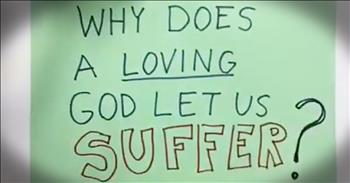 WHY DOES
A LOVING
GOD LET US
SUFFER?